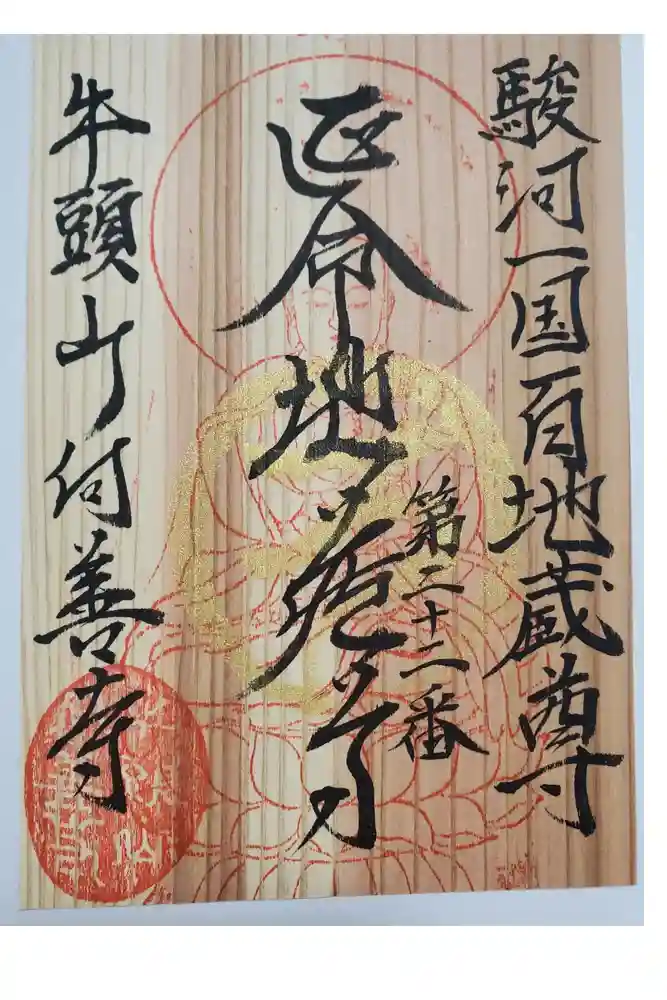 駿河一国百地蔵尊
第二十二番
延命地蔵尊
牛頭山付善寺